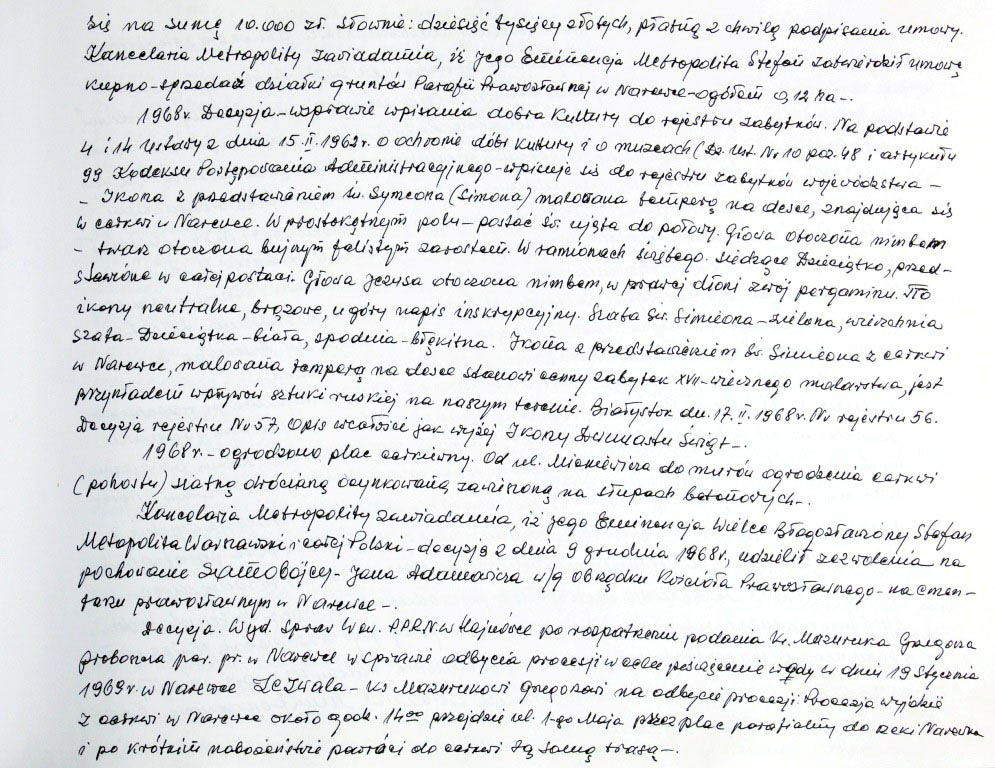 się na sumę 10.000 zł. słownie: dziesięć tysięcy złotych, płatną z chwilą podpisania umowy.
Kancelaria Metropolity zawiadamia, iż Jego Eminencja Metropolita Stefan zatwierdził umowę
kupno-sprzedaż działki gruntów Parafii Prawosławnej w Narewce-ogółem 0,12 ha-.
1968r. Decyzja-wsprawie wpisania dobra kultury do rejestru zabytków. Na podstawie
4 i 14 ustawy z dnia 15.II.1962r. o ochronie dóbr kultury i o muzeach (Dz. Ust. Nr 10 poz. 48 i artykułu
99 Kodeksu Postępowania Administracyjnego-wpisuje się do rejestru zabytków województwa -
- Ikona z przedstawieniem św. Symeona (Simona) malowana temperą na desce, znajdująca się
w cerkwi w Narewce. W prostokątnym polu-postać św. ujęta do połowy. Głowa otoczona nimbem
- twarz otoczona bujnym falistym zarostem. W ramionach świętego siedzące Dzieciątko, przed-
stawione w całej postaci. Głowa Jezusa otoczona nimbem, w prawej dłoni zwój pergaminu. Tło
ikony neutralne, brązowe, u góry napis inskrypcyjny. Szata św. Simeona-zielona, wierzchnia
szata-Dzieciątka-biała, spodnia-błękitna. Ikona z przedstawieniem św. Simeona z cerkwi
w Narewce, malowana temperą na desce stanowi cenny zabytek XVII-wiecznego malarstwa, jest
przykładem wpływów sztuki ruskiej na naszym terenie. Białystok dn. 17.II.1968r. Nr rejestru 56.
Decyzja rejestru Nr 57, Opis wcałości jak wyżej Ikony Dwunastu Świąt-.
1968r.-ogrodzono plac cerkiewny. Od ul. Mickiewicza do murów ogrodzenia cerkwi
(pohostu) siatką drucianą ocynkowaną zawieszoną na słupach betonowych-.
Kancelaria Metropolity zawiadamia, iż Jego Eminencja Wielce Błogosławiony Stefan
Metopolita Warszawski i całej Polski-decyzją z dnia 9 grudnia 1968r, udzielił zezwolenia na
pochowanie samobójcy-Jana Adamowicza w/g obrządku Kościoła Prawosławnego-na cmen-
tarzu prawosławnym w Narewce-.
Decyzja. Wyd. Spraw Wew. P.P.R.N. w Hajnówce po rozpatrzeniu podania ks. Mazuruka Grzegorza
proboszcza par. pr. w Narewce w sprawie odbycia procesji w celu poświęcenie wody w dniu 19 Stycznia
1969r. w Narewce Zezwala-ks Mazurukowi Grzegorzowi na odbycie procesji: Procesja wyjdzie
z cerkwi w Narewce około godz. 14⁰⁰ przejdzie ul. 1-go Maja przez plac parafialny do rzeki Narewka
i po krótkim nabożeństwie powróci do cerkwi tą samą trasą-.